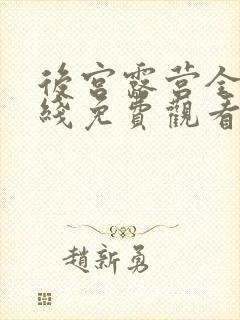 後宮露营全
綫免費觀看
趙新勇